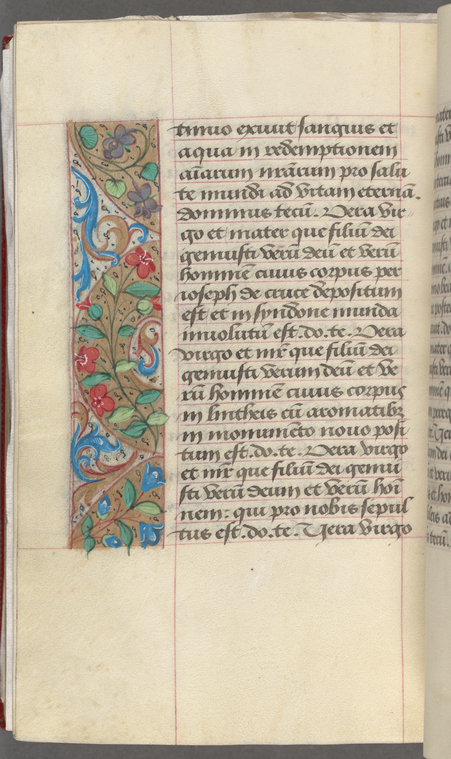 tinuo exivit sanguis et
aqua in redemptionem
aiarum nrarum pro salu
te mundi ad vitam eternā.
dominus tecū. Vera vir
go et mater que filiū dei
genuisti verū deū et verū
hominē cuius corpus per
ioseph de cruce depositum
est et in syndone munda
involutū est. do. te. Vera
virgo et mr que filiū dei
genuisti verum deū et ve
rū hominē cuius corpus
in lintheis cū aromatibz
in monumēto novo posi
tum est. do. te. Vera virgo
et mr que filiū dei genui
sti verū deum et verū hoī
nem: qui pro nobis sepul
tus est. do. te. Vera virgo